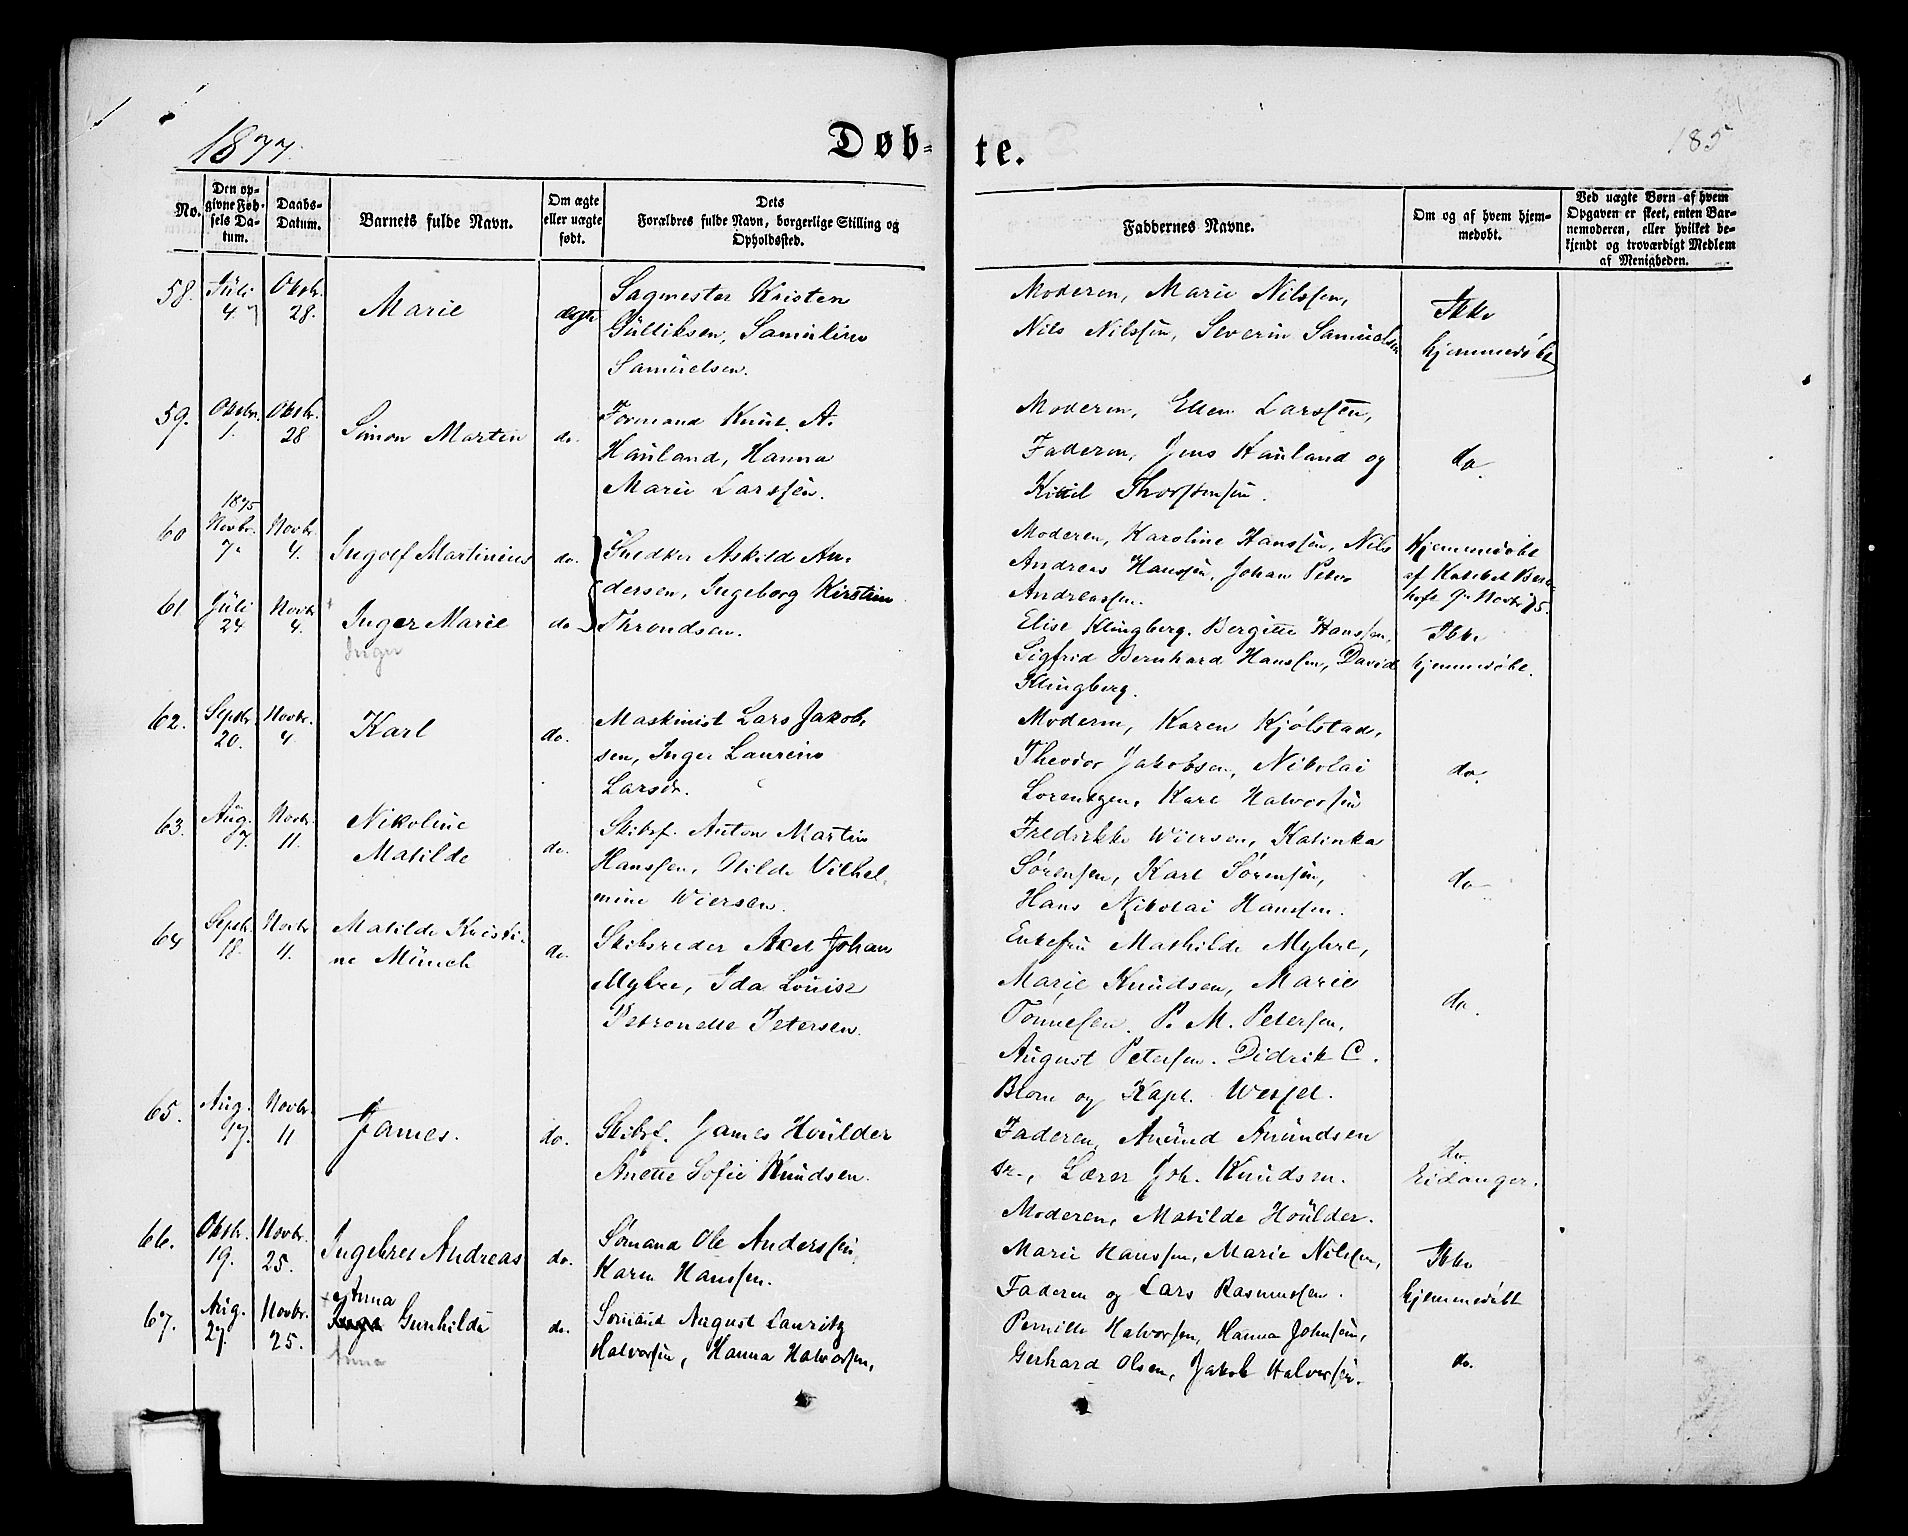 1877.
Døb-
te.
185
No.
Den op-
givne Fød-
sels Da-
tum.
Daabs-
Datum.
Barnets fulde Navn.
Om ægte
eller uægte
født.
Dets
Forældres fulde Navn, borgerlige Stilling og
Opholdssted.
Faddernes Navne.
Om og af hvem hjem-
medøbt.
Ved uægte Børn af hvem
Opgaven er skeet, enten Bar-
nemoderen, eller hvilket be-
kjendt og troværdigt Medlem
af Menigheden.
58.
Juli
4.
Oktbr.
28.
Marie
ægte
Sagmester Kristen
Gulliksen, Samiline
Samuelsen.
Moderen, Marie Nilssen,
Nils Nilssen, Severin Samuelsen
Ikke
hjemmedøbt
59.
Oktbr.
1.
Oktbr.
28
Simon Martin
do.
Formand Knut A.
Hauland, Hanna
Marie Larssen.
Moderen, Ellen Larssen,
Faderen, Jens Hauland og
Kittil Thorstensen.
do.
60
1875
Novbr.
7.
Novbr.
4.
Ingolf Martinius
do.
Snedker Askild An-
dersen, Ingeborg Kirstine
Throndsen.
Moderen, Karoline Hanssen, Nils
Andreas Hanssen, Johan Peter
Andreassen.
Hjemmedøbt
af Kateket
9 Novbr 75.
61
Juli
24
Novbr
4.
Inger Marie
Inger
do
Elise Klingberg. Bergitte Hanssen,
Sigfrid Bernhard Hanssen, David
Klingberg.
Ikke
hjemmedøbt.
62.
Septbr
20.
Novbr.
4.
Karl
do.
Maskinist Lars Jakob-
sen, Inger Laurine
Larsdr.
Moderen, Karen Kjølstad,
Theodor Jakobsen, Nikolai
Lorentzen, Karl Halvorsen
do.
63.
Aug.
17.
Novbr.
11.
Nikoline
Matilde
do.
Skibsf. Anton Martin
Hanssen, Hilda Vilhel-
mine Wiersen.
Fredrikke Wiersen, Katinka
Sørensen, Karl Sørensen,
Hans Nikolai Hansen.
do
64
Septbr.
18.
Novbr
11.
Matilde Kristi-
ne Münch
do.
Skibsreder Axel Johan
Myhre, Ida Louise
Petronelle Petersen.
Enkefru Mathilde Myhre,
Marie Knudsen, Marie
Tønnesen. P. M. Petersen,
August Petersen. Didrik C.
Blom og Kapt. Wessel.
do.
65.
Aug.
17.
Novbr.
11
James.
do.
Skibsf. James Houlder
Anette Sofie Knudsen.
Faderen, Amund Amundsen
sr., Lærer Joh. Knudsen.
Moderen, Matilde Houlder.
do.
Eidanger.
66.
Oktbr.
19.
Novbr.
25.
Ingebret Andreas
do.
Sømand Ole Anderssen,
Karen Hanssen.
Marie Hanssen, Marie Nilssen,
Faderen og Lars Rasmussen.
Ikke
hjemmedøbt
67.
Aug.
27.
Novbr.
25.
+ Anna
Gunhilda
Anna
do.
Sømand August Lauritz
Halvorsen, Hanna Halvorsen,
Pernille Halvorsen, Hanna Johnsen,
Gerhard Olsen, Jakob Halvorsen.
do.